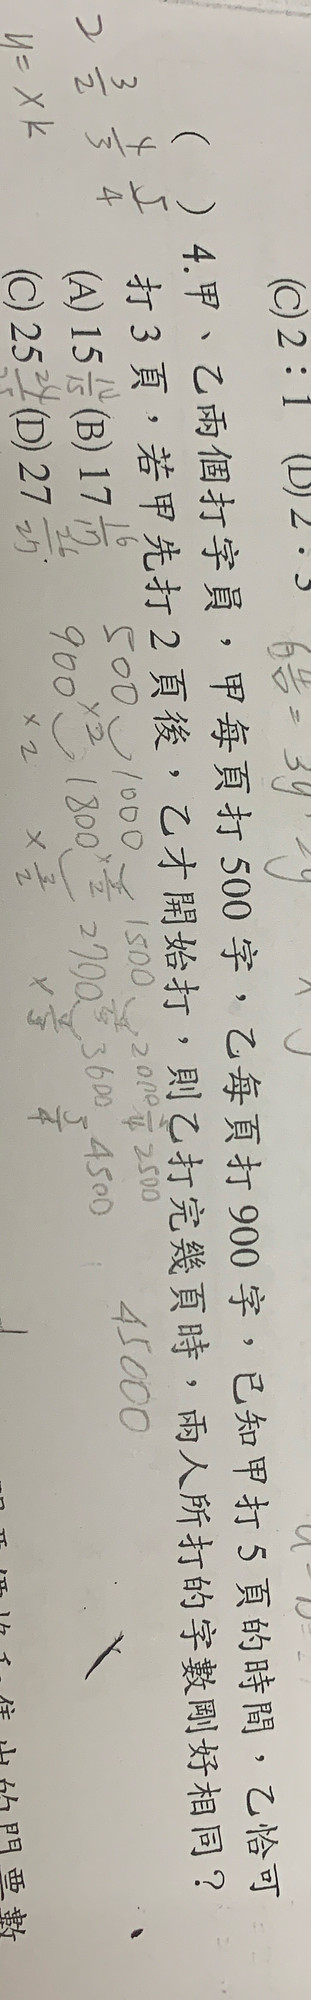 (C) 2：1 (D) 2：3
( ) 4. 甲、乙兩個打字員，甲每頁打 500 字，乙每頁打 900 字，已知甲打 5 頁的時間，乙恰可
打 3 頁，若甲先打 2 頁後，乙才開始打，則乙打完幾頁時，兩人所打的字數剛好相同？
(A) 15 (B) 17
(C) 25 (D) 27
500 1000 1500 2000 2500
900 1800 2700 3600 4500
×2 ×3/2 ×4/3 5/4
45000
3/2 4/3 5/4
y = xk